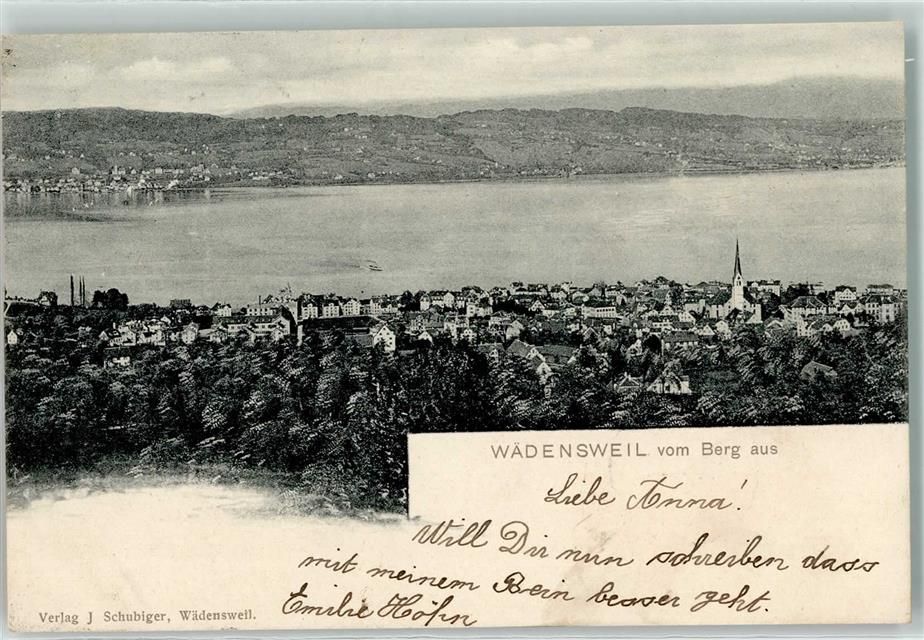 WÄDENSWEIL vom Berg aus
Liebe Anna!
Will Dir nun schreiben dass
mit meinem Bein besser geht.
Emilie Höhn
Verlag J Schubiger, Wädensweil.